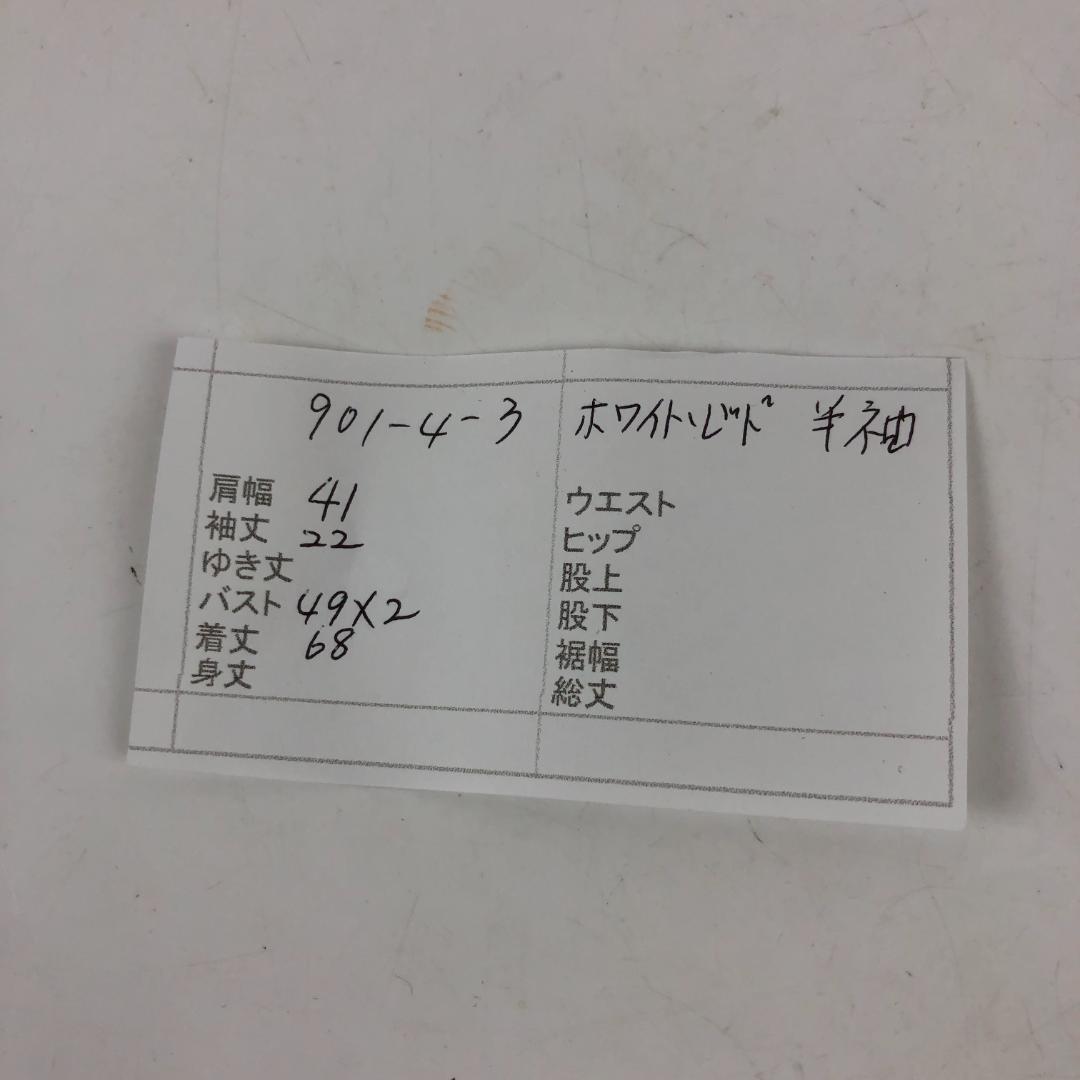 901-4-3 ホワイト、レッド 半袖
肩幅 41
袖丈 22
ゆき丈
バスト 49×2
着丈 68
身丈
ウエスト
ヒップ
股上
股下
裾幅
総丈